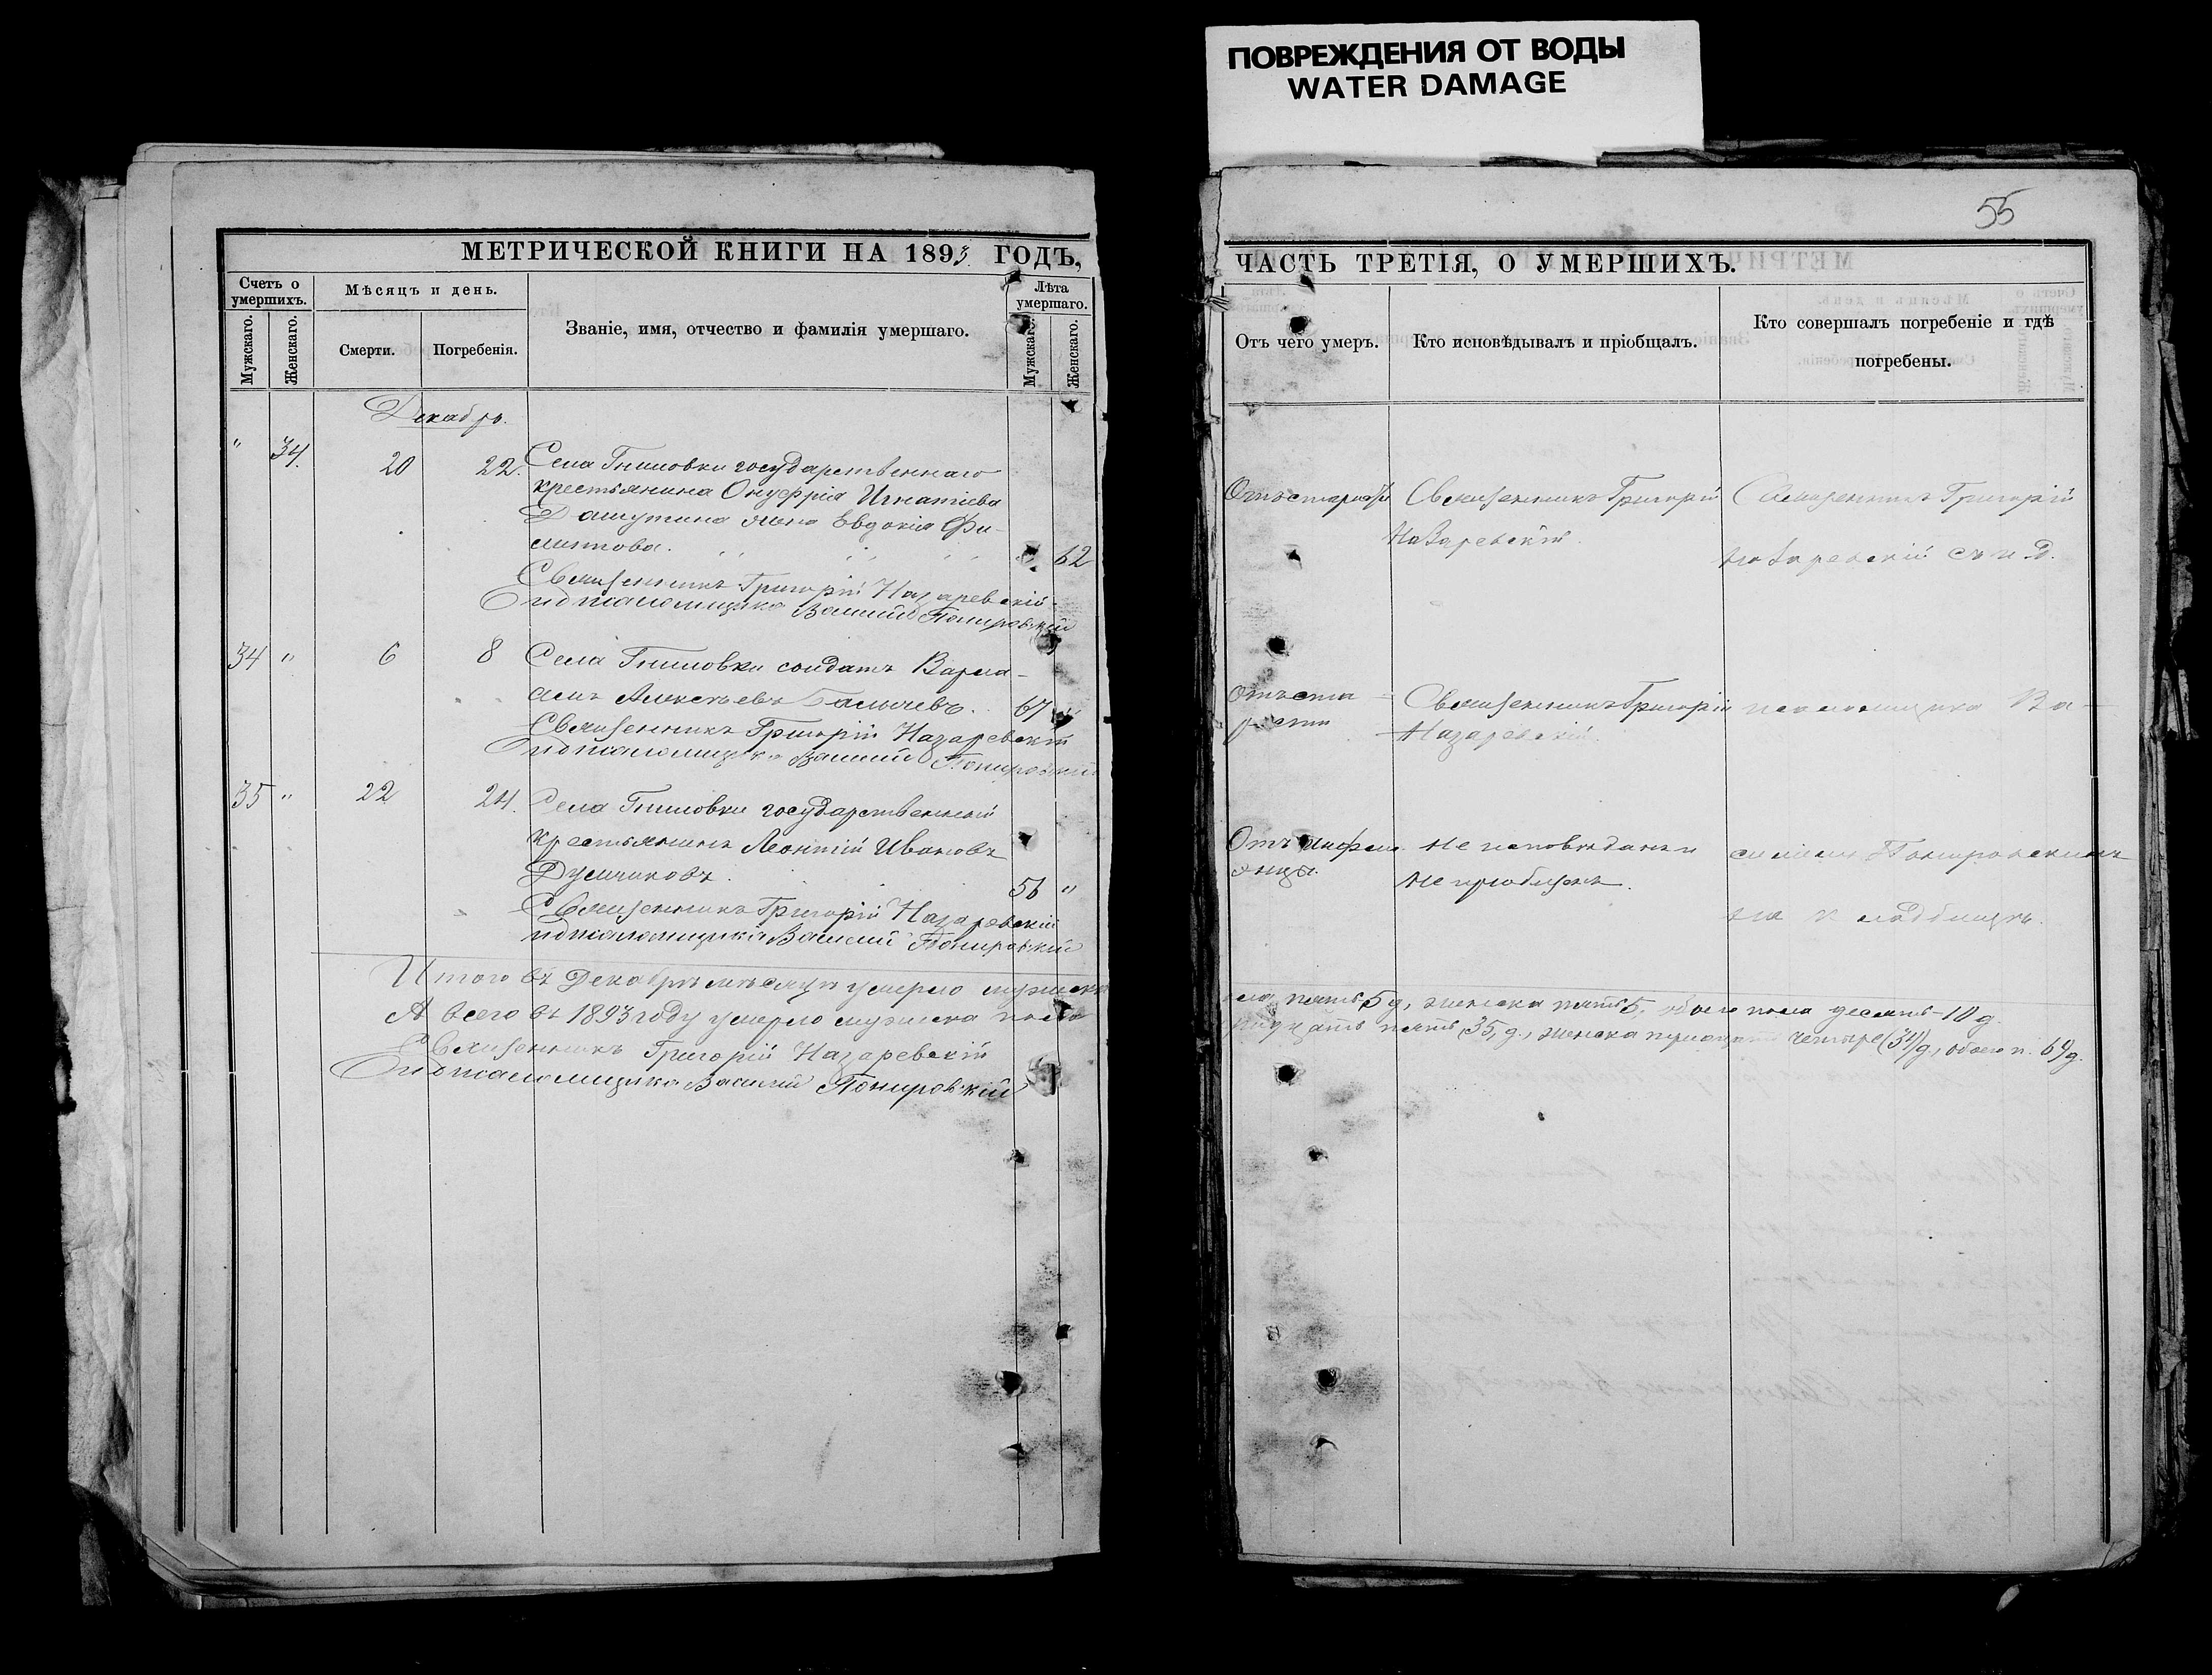 ПОВРЕЖДЕНИЯ ОТ ВОДЫ
WATER DAMAGE
55
МЕТРИЧЕСКОЙ КНИГИ НА 1893 ГОДЪ,
Счетъ о умершихъ.
Мужскаго.
Женскаго.
Мѣсяцъ и день.
Смерти.
Погребенія.
Званіе, имя, отчество и фамилія умершаго.
Лѣта умершаго.
Мужскаго.
Женскаго.
Декабрь.
" 34. 20 22. Села Гниловки государственнаго
крестьянина Онуфрія Игнатіева
жена Евдокія Фи-
липпова. 62
Священникъ Григорій Назаревскій
И д псаломщика Василій Понировскій
34 " 6 8 Села Гниловки солдатъ Варла-
амъ Алексѣевъ 67 "
Священникъ Григорій Назаревскій
И д псаломщика Василій Понировскій
35 " 22 24. Села Гниловки государственный
крестьянинъ Леонтій Ивановъ
56 "
Священникъ Григорій Назаревскій
И д псаломщика Василій Понировскій
Итого въ Декабрѣ мѣсяцѣ умерло мужска
А всего въ 1893 году умерло мужска пола
Священникъ Григорій Назаревскій
И д псаломщика Василій Понировскій
ЧАСТЬ ТРЕТІЯ, О УМЕРШИХЪ.
Отъ чего умеръ.
Кто исповѣдывалъ и пріобщалъ.
Кто совершалъ погребеніе и гдѣ
погребены.
Отъ старости Священникъ Григорій Священникъ Григорій
Назаревскій. Назаревскій съ и. д.
Отъ ста- Священникъ Григорій псаломщика Ва-
рости Назаревскій.
Отъ инфлю- Не исповѣданъ и силіемъ Понировскимъ
энцы. Не пріобщенъ. на кладбищѣ.
пола пять 5 д, женска пять 5, обоего пола десять-10 д.
тридцать пять (35) д., женска тридцать четыре (34) д., обоего п. 69 д.